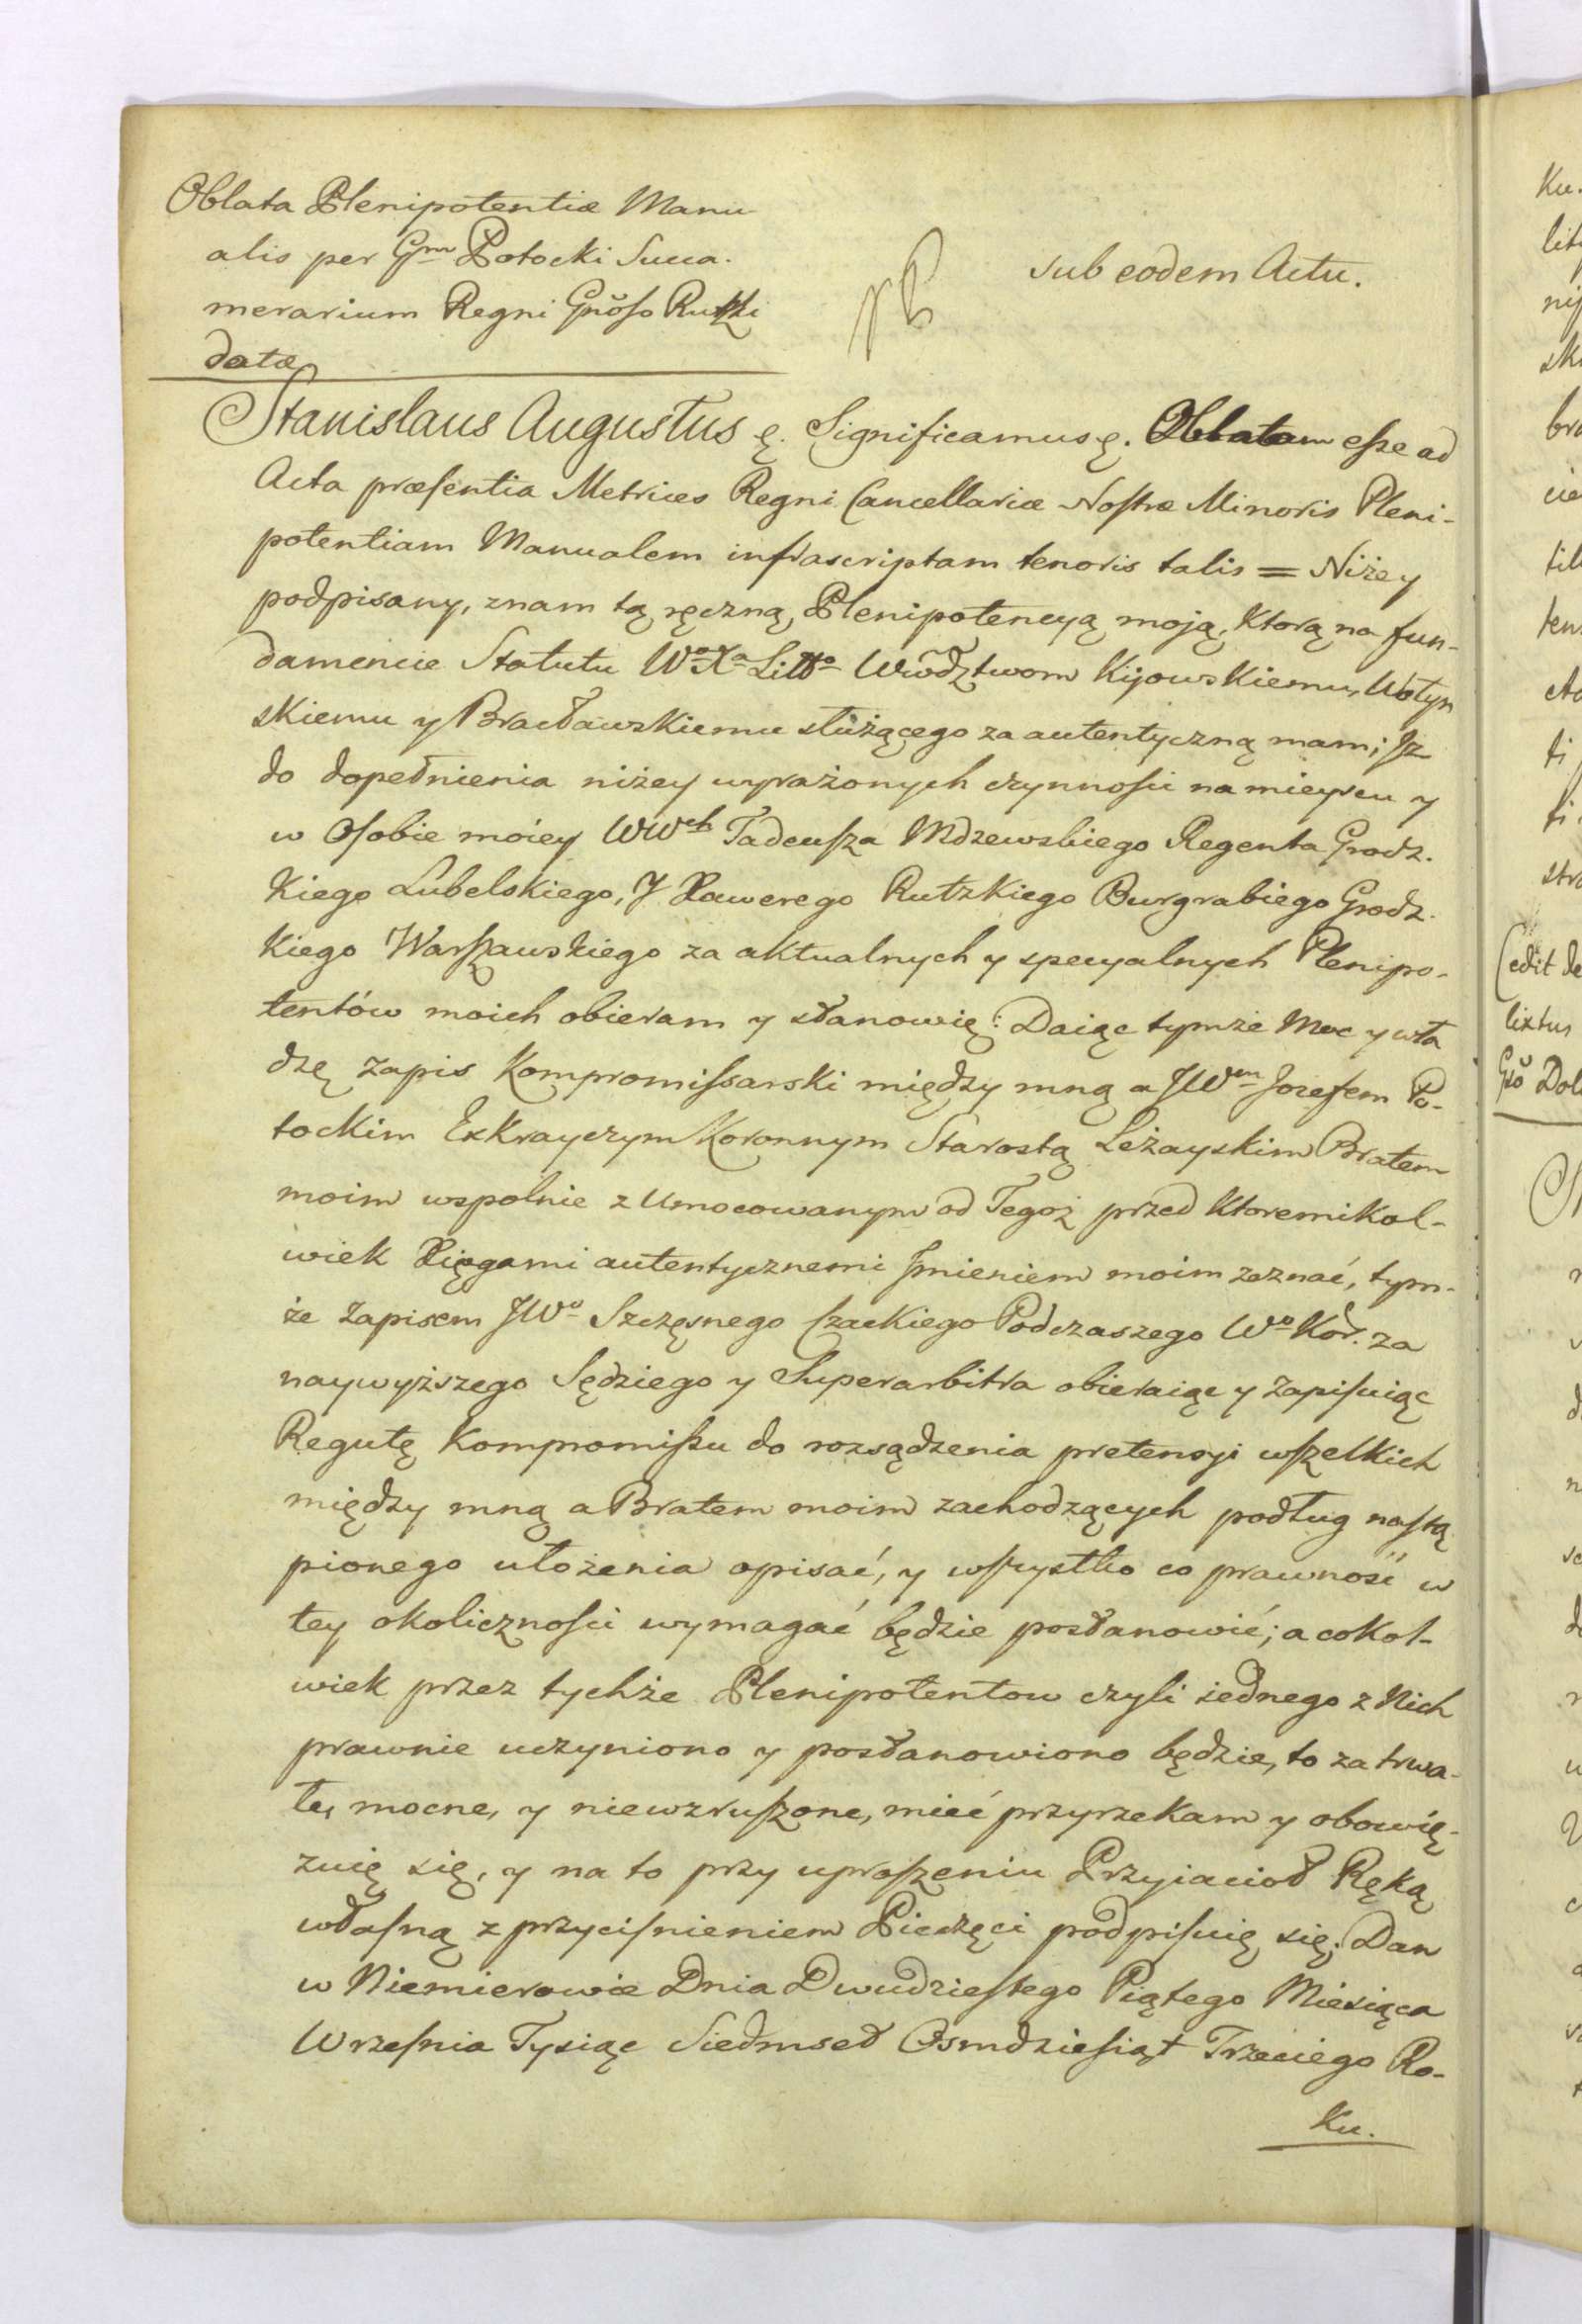 Oblata Plenipotentiæ Manu-
alis per Gnm Potocki Succa-
merarium Regni Gnoso Rutzki
datæ
sub eodem Actu.
Stanislaus Augustus &. Significamus &. Oblatam esse ad
Acta præsentia Metrices Regni Cancellariæ Nostræ Minoris Pleni-
potentiam Manualem infrascriptam tenoris talis = Niżey
podpisany, znam tą ręczną Plenipotencyą moją, Ktorą na fun-
damencie Statutu Wo Xa Litto Wwodztwom Kijowskiemu, Wołyn
skiemu y Bracławskiemu służącego za autentyczną mam; Jz
do dopełnienia niżey wyrażonych czynności na mieyscu y
w Osobie móiey WWch Tadeusza Mdzewskiego Regenta Grodz.
kiego Lubelskiego, J Xawerego Rutzkiego Burgrabiego Grodz.
kiego Warszawskiego za aktualnych y specyalnych Plenipo-
tentów moich obieram y stanowię: Daiąc tymże Moc y wła
dzę Zapis Kompromissarski między mną a JWm Jozefem Po-
tockim ExKrayczym Koronnym Starostą Leżayskim Bratem
moim wspolnie z Umocowanym od Tegoż przed Ktoremikol-
wiek Xięgami autentycznemi Jmieniem moim zeznać, tym-
że Zapisem JWo Szczęsnego Czackiego Podczaszego Wo Kor. za
naywyższego Sędziego y Superarbitra obieraiąc y Zapisuiąc
Regułę Kompromissu do rozsądzenia pretensyi wszelkich
między mną a Bratem moim zachodzących podług nastą
pionego ułożenia opisać, y wszystko co prawność w
tey okoliczności wymagać będzie postanowić; a cokol-
wiek przez tychże Plenipotentow czyli iednego z Nich
prawnie uczyniono y postanowiono będzie, to za trwa-
łe, mocne, y niewzruszone, mieć przyrzekam y obowię-
zuię się, y na to przy uproszeniu Przyiacioł Ręką
własną z przyciśnieniem Pieczęci podpisuię się; Dan
w Niemierowie Dnia Dwudziestego Piątego Miesiąca
Wrzesnia Tysiąc Siedmset Osmdziesiąt Trzeciego Ro-
ku.